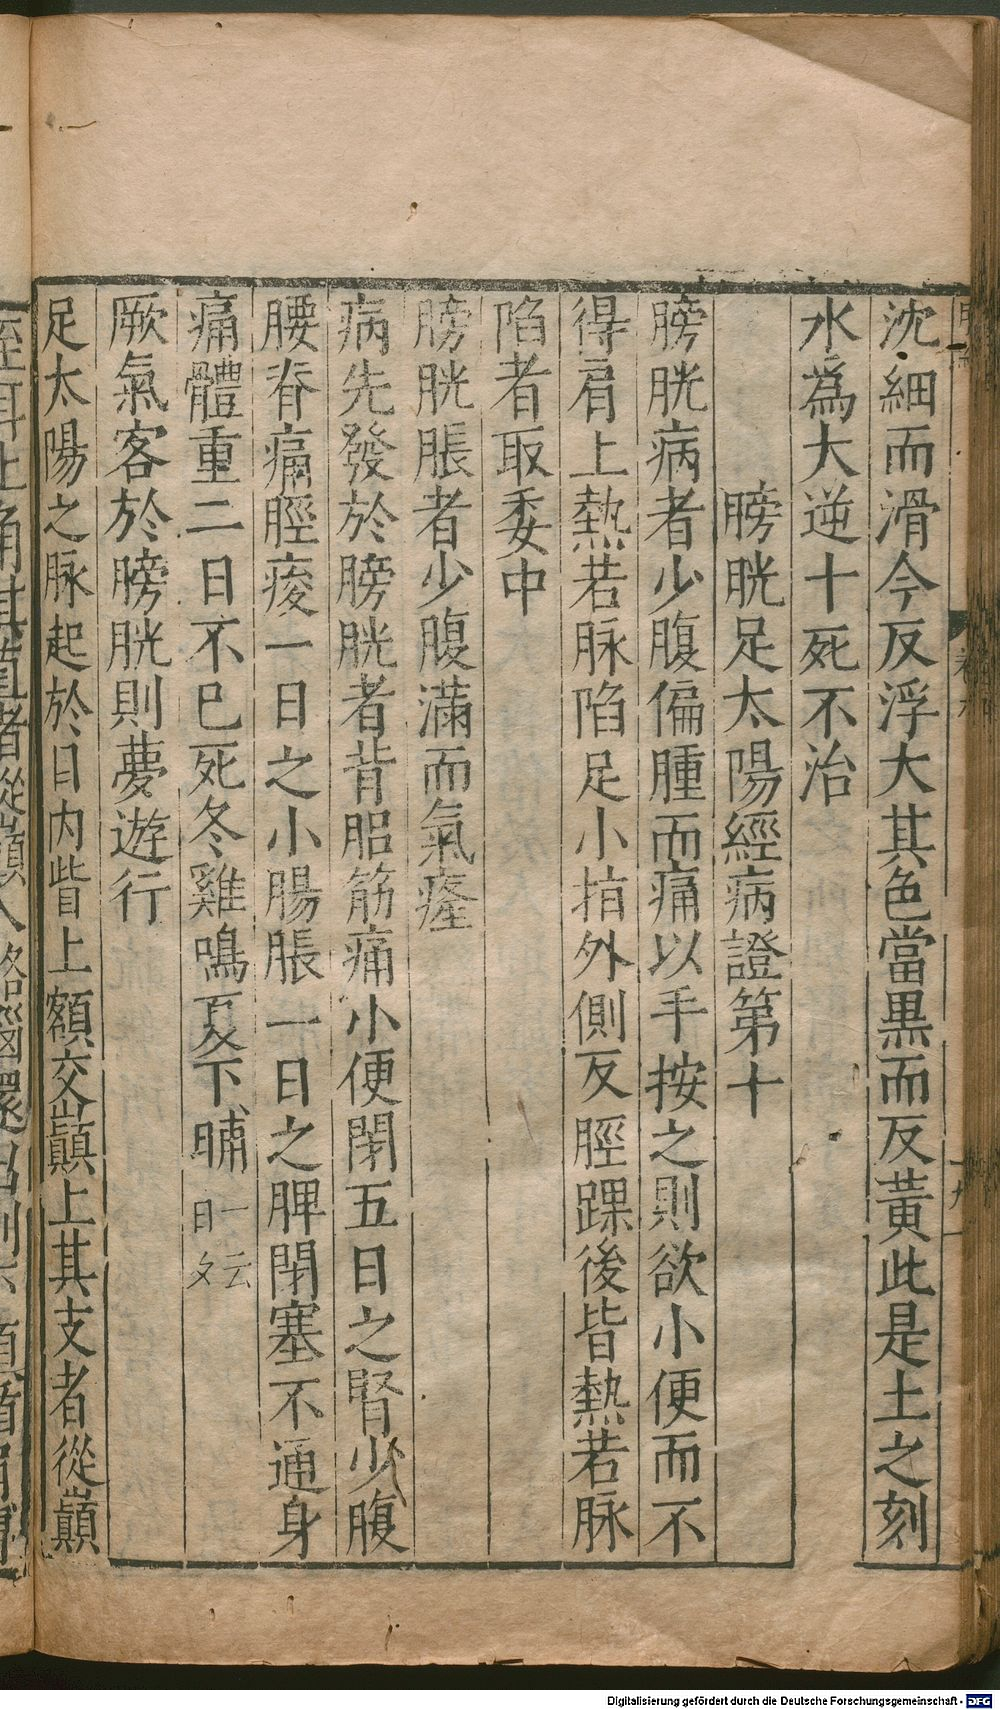 沈細而滑今反浮大其色當黒而反黃此是土之刻
水為大逆十死不治
膀胱足太陽經病證第十
膀胱病者少腹偏腫而痛以手按之則欲小便而不
得肩上熱若脉陷足小指外側反脛踝後皆熱若脉
陷者取委中
膀胱脹者少腹滿而氣癃
病先發於膀胱者背䏚筋痛小便閉五日之腎少腹
腰脊痛脛痠一日之小腸脹一日之脾閉塞不通身
痛體重二日不巳死冬雞鳴夏下晡一云日夕
厥氣客於膀胱則夢遊行
足太陽之脉起於目内眥上額交巔上其支者從巔
Digitalisierung gefördert durch die Deutsche Forschungsgemeinschaft - DFG